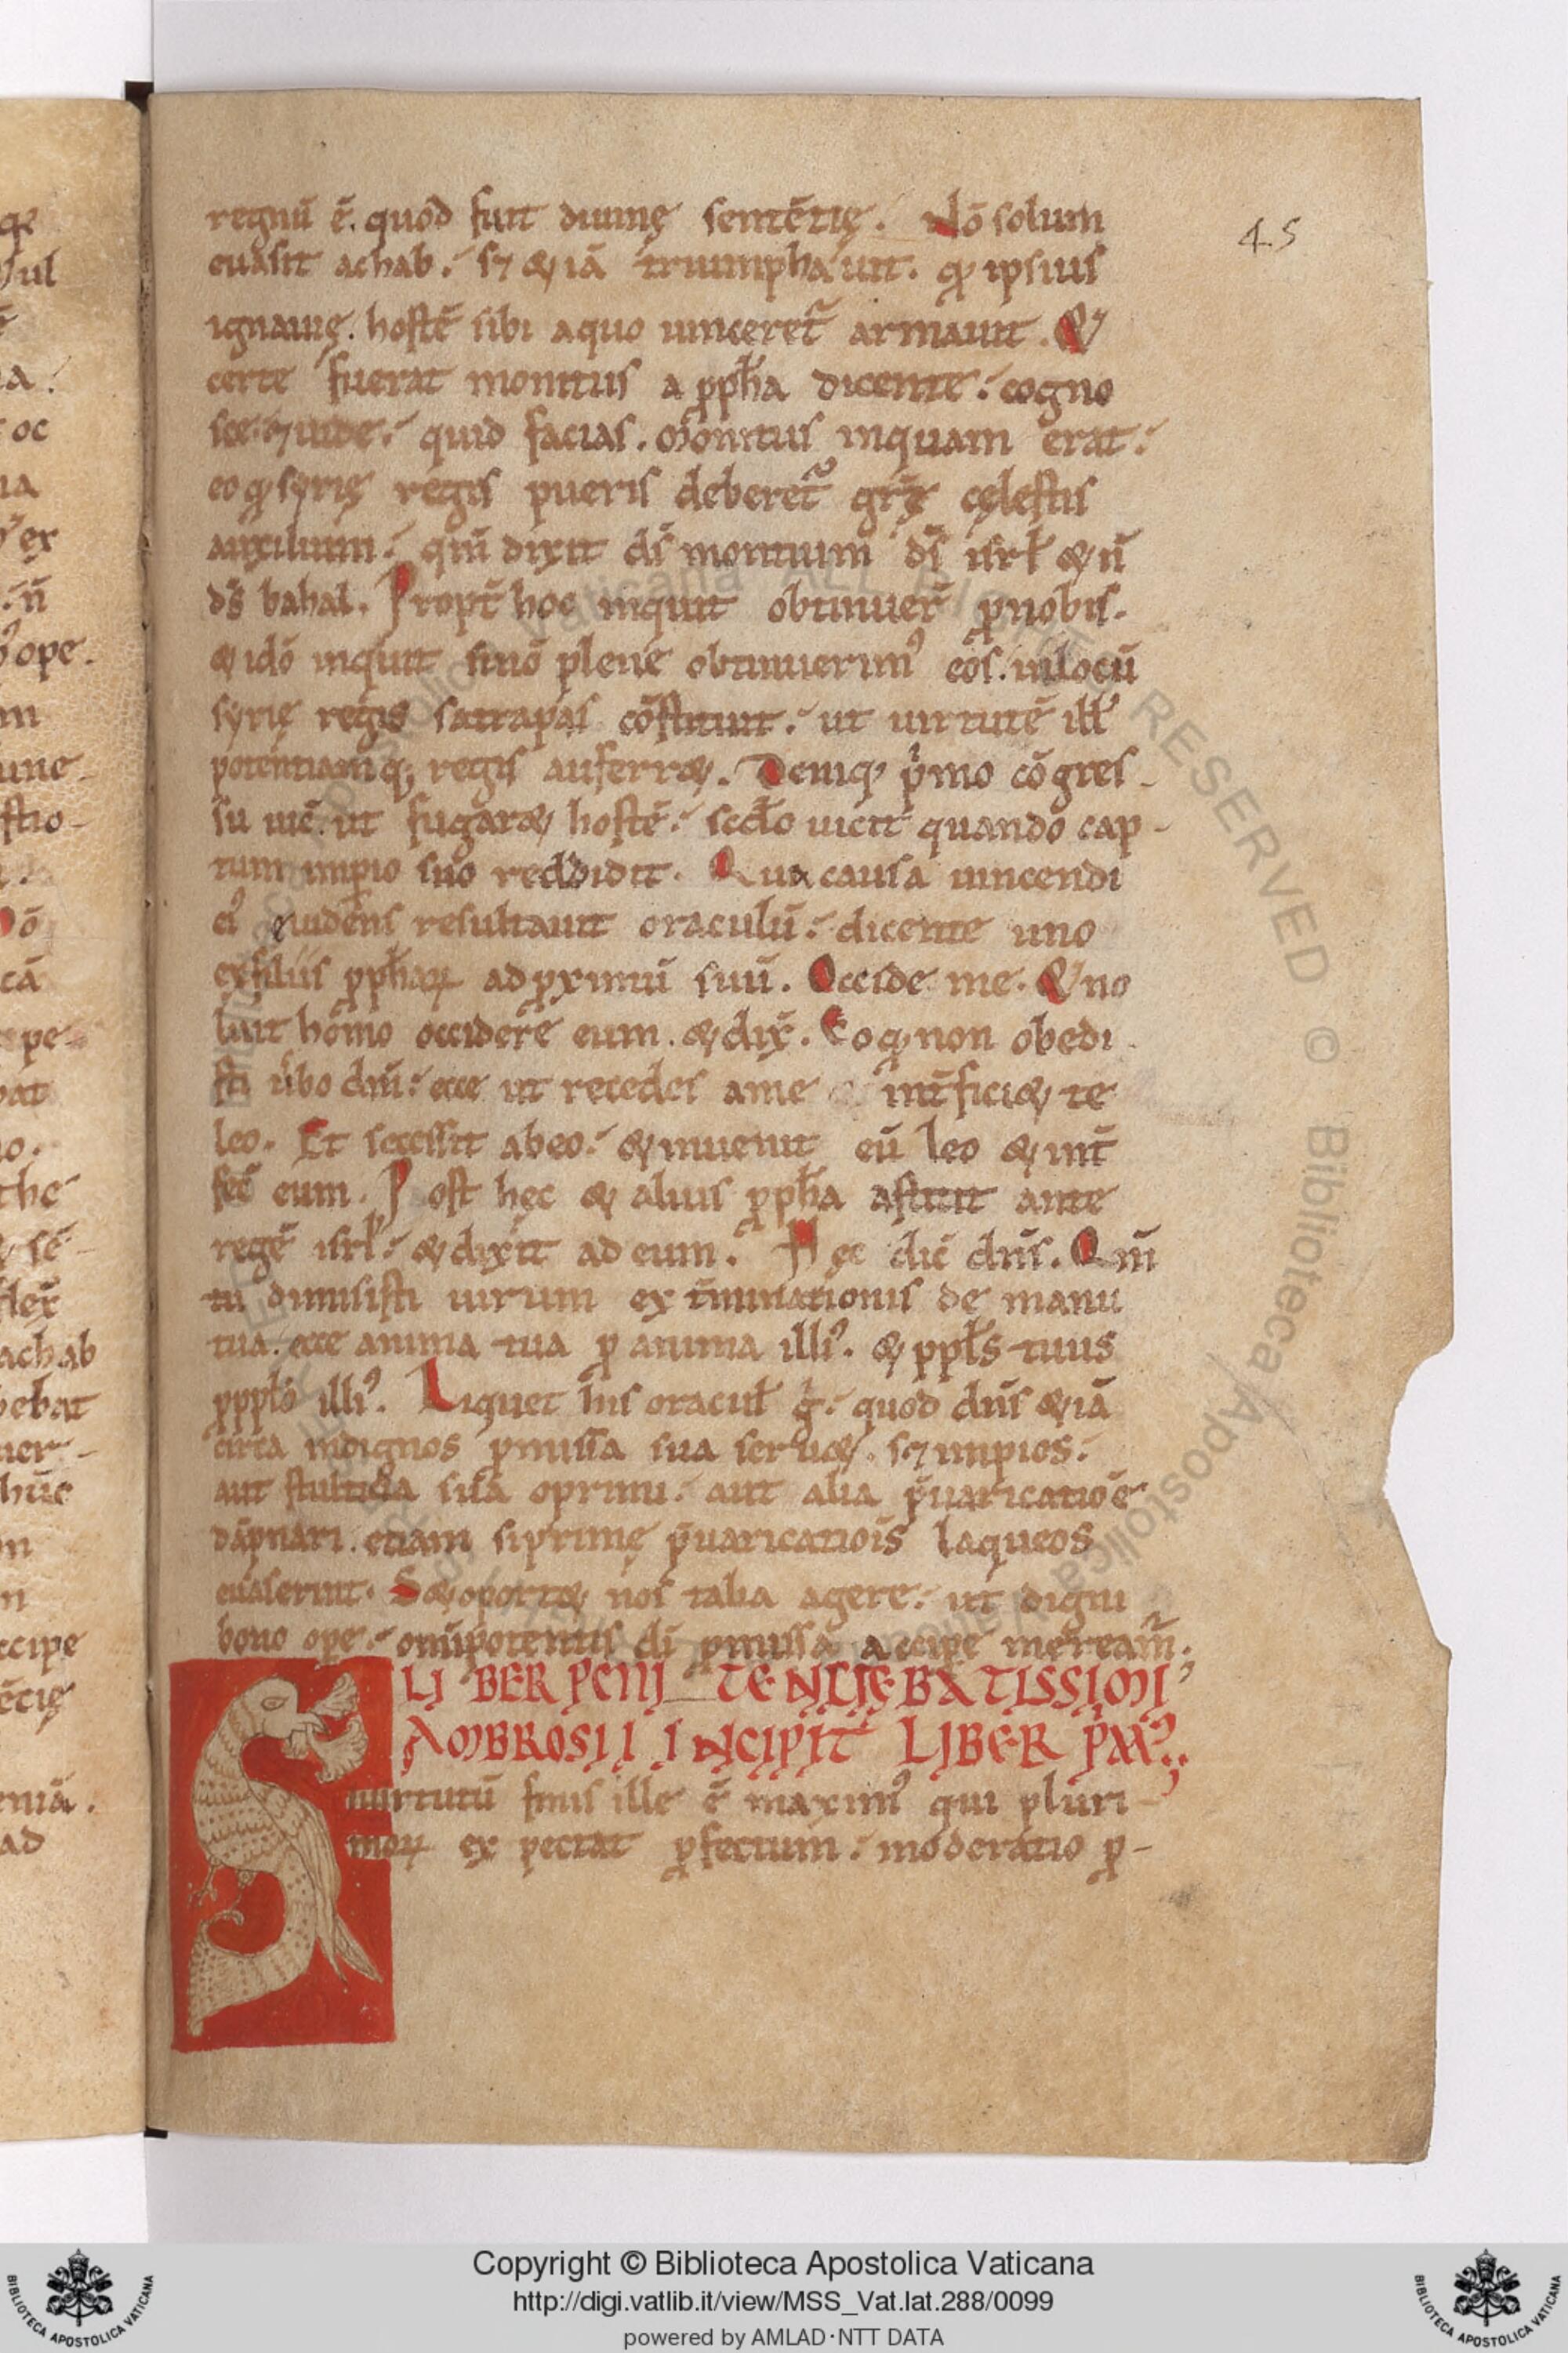 regnū ē. quod fuit diuinę sentētię. Nō solum
45
euasit achab. s; & iā triumphauit. q ipsius
ignauię. hostē sibi a quo uinceret armauit. &
certe fuerat monitus a ppha dicente. cogno
sce. ⁊ uide. quid facias. Monitus inquam erat.
eo q syrię regis pueris deberet grę cęlestis
auxilium. qm̄ dixit ds̄ montium ds̄ isrl & n̄
ds̄ bahal. Propt hoc inquit obtinuer p nobis.
& idō inquit sinō plene obtinuerim' eos. in locū
syrię regis satrapas cōstituit. ut uirtutē ill'
potentiamq; regis auferr&. Deniq; pmo cōgres-
su uic. ut fugar& hostē. scdo uicit quando cap-
tum impio suo reddidit. Qua causa uincendi
ei' euidens resultauit oraculū. dicente uno
ex filiis pphaꝝ ad pximū suū. Occide me. & no
luit homo occidere eum. & dix. Eo q non obedi
sti ubo dn̄i. ecce ut recedes a me int̄fici& te
leo. Et secessit ab eo. & inuenit eū leo & int̄
fec eum. Post hęc & alius ppha astitit ante
regē isrl. & dixit ad eum. Hęc dic dn̄s. Qm̄
tu dimisisti uirum ext̄minationis de manu
tua. ecce anima tua p anima illi'. & ppls tuus
p pplo illi'. Liquet his oracul g. quod dn̄s &iā
circa indignos pmissa sua seru&. s; impios.
aut stulticia sua oprimi. aut alia p̄uaricatiōe
dāpnari. etiam si primę p̄uaricatiois laqueos
euaserint. S& oport& nos talia agere. ut digni
bono ope. omipotentis di pmissa accipe meream̄.
LIBER PENITENCIĘ BEATISSIMI
AMBROSII INCIPIT LIBER PM'
S uirtutū finis ille ē maxim' qui pluri-
moꝝ expectat pfectum. moderatio p-
Copyright © Biblioteca Apostolica Vaticana
http://digi.vatlib.it/view/MSS_Vat.lat.288/0099
powered by AMLAD·NTT DATA
BIBLIOTECA APOSTOLICA VATICANA
BIBLIOTECA APOSTOLICA VATICANA